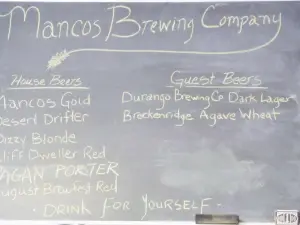 Mancos Brewing Company
House Beers
Mancos Gold
Desert Drifter
Dizzy Blonde
Cliff Dweller Red
PAGAN PORTER
August Brewted Red
Guest Beers
Durango Brewing Co Dark Lager
Breckenridge Agave Wheat
- DRINK FOR YOURSELF -